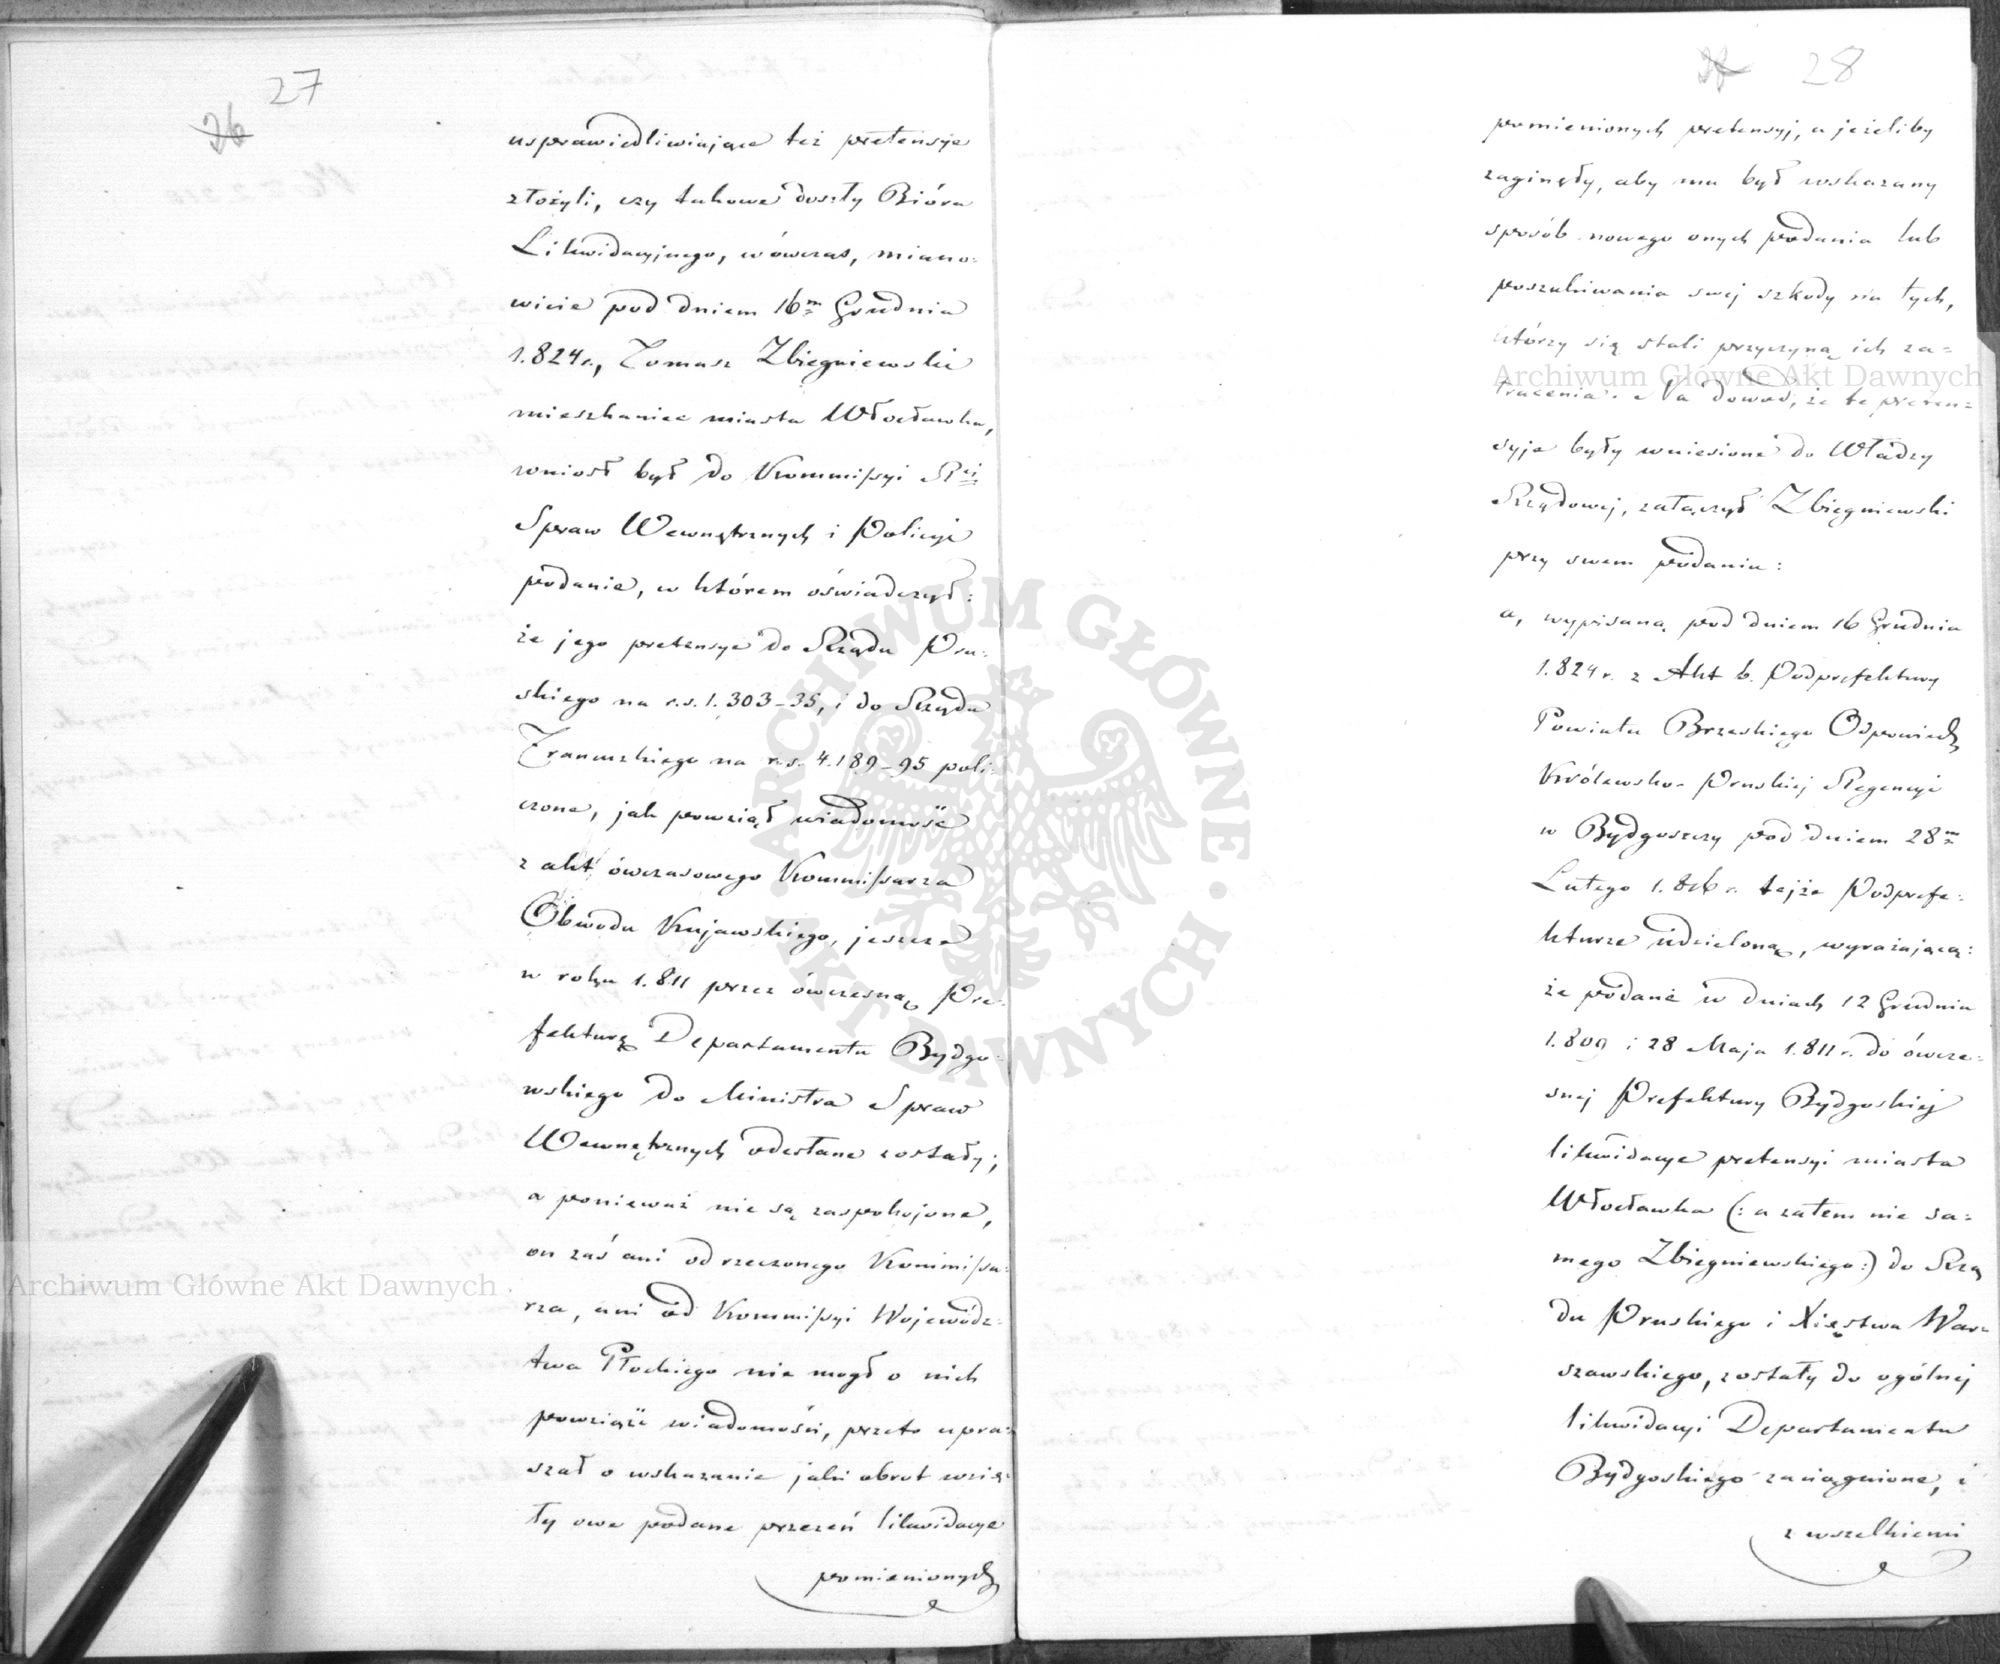 27
26
usprawiedliwiające też pretensye
złożyli, czy takowe doszły Bióra
Likwidacyjnego, wówczas, miano-
wicie pod dniem 16m Grudnia
1.824 r., Tomasz Zbiegniewski
mieszkaniec miasta Włocławka,
wniosł był do Kommissyi Rej
Spraw Wewnętrznych i Policyi
podanie, w którem oświadczył:
że jego pretensye do Rządu Pru-
skiego na r.s. 1.303-35, i do Rządu
Francuzkiego na r.s. 4.189-95 poli-
czone, jak powziął wiadomość
z akt ówczasowego Kommissarza
Obwodu Kujawskiego, jeszcze
w roku 1.811 przez ówczesną Pre-
fekturę Departamentu Bydgo-
wskiego do Ministra Spraw
Wewnętrznych odesłane zostały;
a ponieważ nie są zaspokojone,
on zaś ani od rzeczonego Kommissa-
rza, ani od Kommissyi Wojewódz-
twa Płockiego nie mogł o nich
powziąść wiadomości, przeto upra-
szał o wskazanie jaki obrot wzię-
ły owe podane przezeń likwidacye
pomienionych
28
pomienionych pretensyj, a jeżeliby
zaginęły, aby mu był wskazany
sposób nowego onych podania lub
poszukiwania swej szkody na tych,
którzy się stali przyczyną ich za-
tracenia. Na dowod, że te preten-
syje były wniesione do Władzy
Rządowej, załączył Zbiegniewski
przy swem podaniu:
a, wypisaną pod dniem 16 Grudnia
1.824 r. z Akt b. Podprefektury
Powiatu Brzeskiego Odpowiedź
Królewsko-Pruskiej Regencyi
w Bydgoszczy pod dniem 28m
Lutego 1.816 r. tejże Podprefe-
kturze udzieloną, wyrażającą:
że podane w dniach 12 Grudnia
1.809 i 28 Maja 1.811 r. do ówcze-
snej Prefektury Bydgoskiej
likwidacye pretensyi miasta
Włocławka (: a zatem nie sa-
mego Zbiegniewskiego :) do Rzą
du Pruskiego i Xięstwa War-
szawskiego, zostały do ogólnej
likwidacyi Departamentu
Bydgoskiego zaciągnione, i
z wszelkiemi
Archiwum Główne Akt Dawnych
Archiwum Główne Akt Dawnych
ARCHIWUM GŁÓWNE AKT DAWNYCH